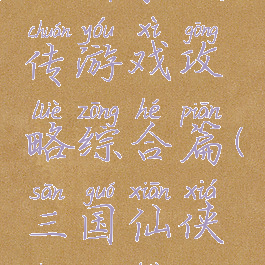 chuán yóu xì gōng
传游戏攻
lüè zōng hé piān
略综合篇(
sān guó xiān xiá
三国仙侠